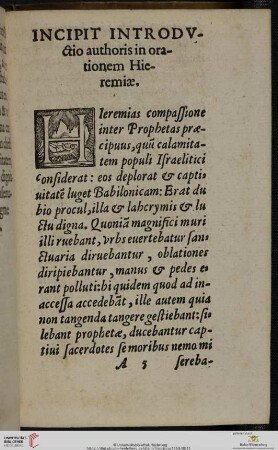 INCIPIT INTRODV-
ctio authoris in ora-
tionem Hie-
remiæ.
HIeremias compassione
inter Prophetas præ-
cipuus, quũ calamita-
tem populi Israelitici
considerat: eos deplorat & capti
uitatẽ luget Babilonicam: Erat du
bio procul, illa & lahcrymis & lu
ctu digna. Quoniã magnifici muri
illi ruebant, vrbs euertebatur san-
ctuaria diruebantur, oblationes
diripiebantur, manus & pedes e-
rant polluti: hi quidem quod ad in-
accessa accedebãt, ille autem quia
non tangenda tangere gestiebant: si-
lebant prophetæ, ducebantur cap-
tiui sacerdotes se moribus nemo mi
A 5 sereba-